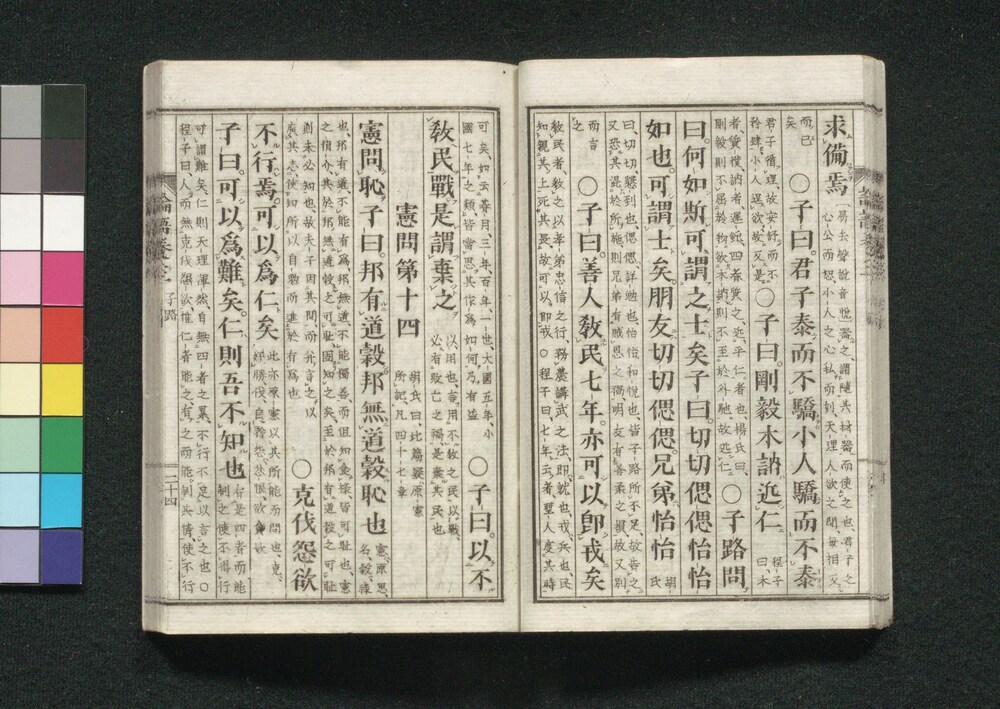 求備焉
易去聲說音悅器之謂隨其材器而使之也君子之
心公而恕小人之心私而刻天理人欲之間每相反
而已
矣
○子曰君子泰而不驕小人驕而不泰
君子循理故安舒而不
矜肆小人逞欲故反是
○子曰剛毅木訥近仁
程子
曰木
者質樸訥者遲鈍四者質之近乎仁者也楊氏曰
剛毅則不屈於物欲木訥則不至於外馳故近仁
○子路問
曰何如斯可謂之士矣子曰切切偲偲怡怡
如也可謂士矣朋友切切偲偲兄弟怡怡
胡
氏
曰切切懇到也偲偲詳勉也怡怡和悅也皆子路所不足故告之
又恐其混於所施則兄弟有賊恩之禍朋友有善柔之損故又別
而言
之
○子曰善人敎民七年亦可以卽戎矣
敎民者敎之以孝弟忠信之行務農講武之法卽就也戎兵也民
知親其上死其長故可以卽戎○程子曰七年云者聖人度其時
可矣如云朞月三年百年一世大國五年小
國七年之類皆當思其作爲如何乃有益
○子曰以不
敎民戰是謂棄之
以用也言用不敎之民以戰
必有敗亡之禍是棄其民也
憲問第十四
胡氏曰此篇疑原憲
所記凡四十七章
憲問恥子曰邦有道穀邦無道穀恥也
憲原思
名穀祿
也邦有道不能有爲邦無道不能獨善而但知食祿皆可恥也憲
之狷介其於邦無道穀之可恥固知之矣至於邦有道穀之可恥
則未必知也故夫子因其問而幷言之以
廣其志使知所以自勉而進於有爲也
○克伐怨欲
不行焉可以爲仁矣
此亦原憲以其所能而問也克
好勝伐自矜怨忿恨欲貪欲
子曰可以爲難矣仁則吾不知也
有是四者而能
制之使不得行
可謂難矣仁則天理渾然自無四者之累不行不足以言之也○
程子曰人而無克伐怨欲惟仁者能之有之而能制其情使不行
論語卷之
子路
二十四